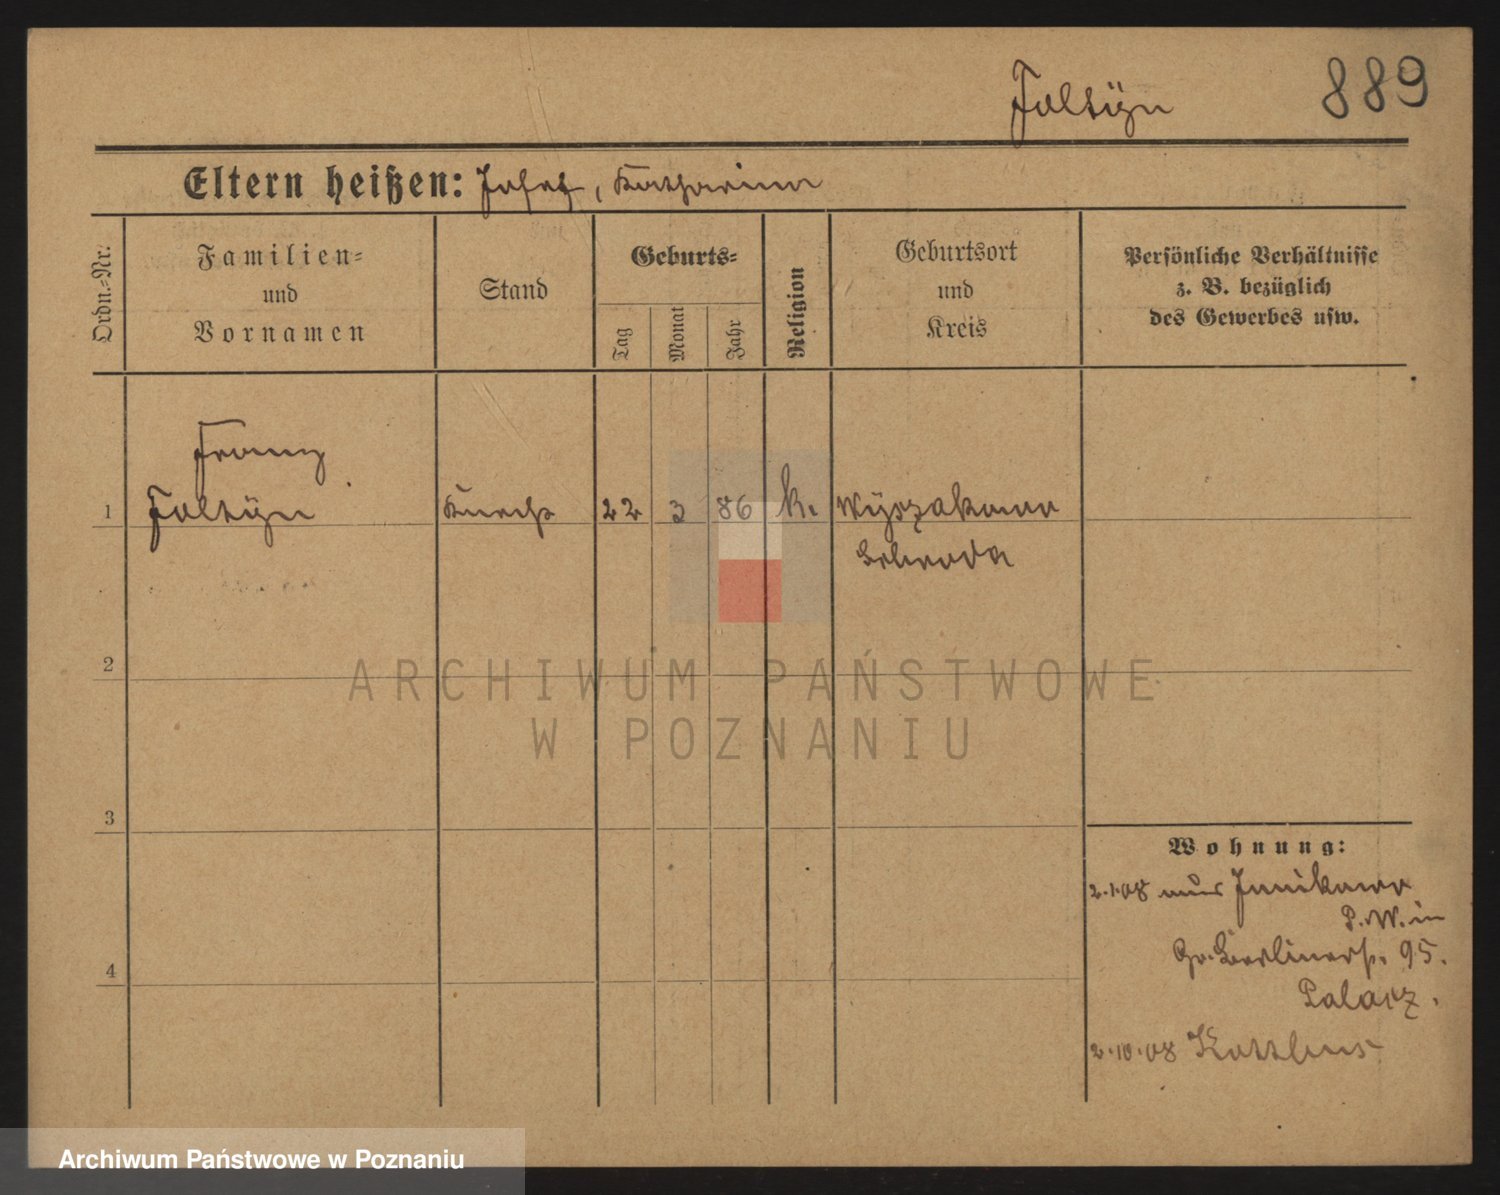 Foltÿn
889
Eltern heißen: Josef, Katharina
Ordn.-Nr.
Familien-
und
Vornamen
Stand
Geburts-
Tag
Monat
Jahr
Religion
Geburtsort
und
Kreis
Persönliche Verhältnisse
z. B. bezüglich
des Gewerbes usw.
Franz
1 Foltÿn Knecht 22 3 86 k. Wÿszakowo
Schroda
2
3
4
Wohnung:
2.1.08 aus Junikowo
P.W. in
Gr. Berlinerst. 95.
Palacz.
2.10.08 Kottbus
ARCHIWUM PAŃSTWOWE
W POZNANIU
Archiwum Państwowe w Poznaniu